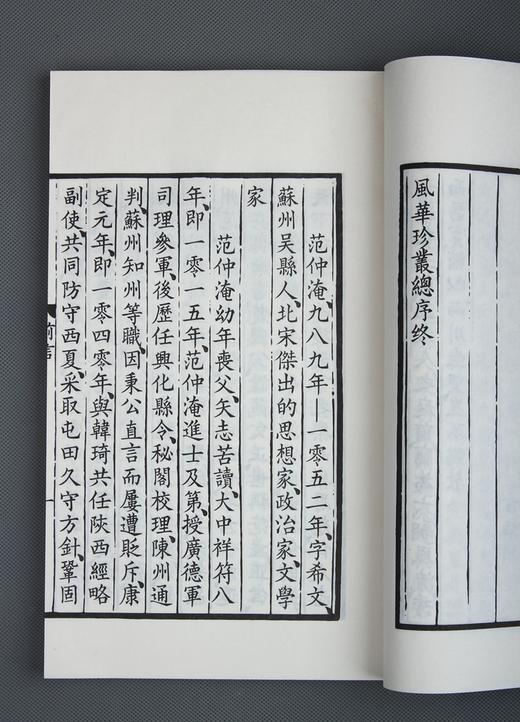 風華珍叢總序終
范仲淹、九八九年—一零五二年、字希文、
蘇州吴縣人、北宋傑出的思想家、政治家、文學
家
范仲淹幼年喪父、矢志苦讀、大中祥符八
年、即一零一五年、范仲淹進士及第、授廣德軍
司理參軍、後歷任興化縣令、秘閣校理、陳州通
判、蘇州知州等職、因秉公直言而屢遭貶斥、康
定元年、即一零四零年、與韓琦共任陝西經略
副使、共同防守西夏、采取屯田久守方針、鞏固
前言
一